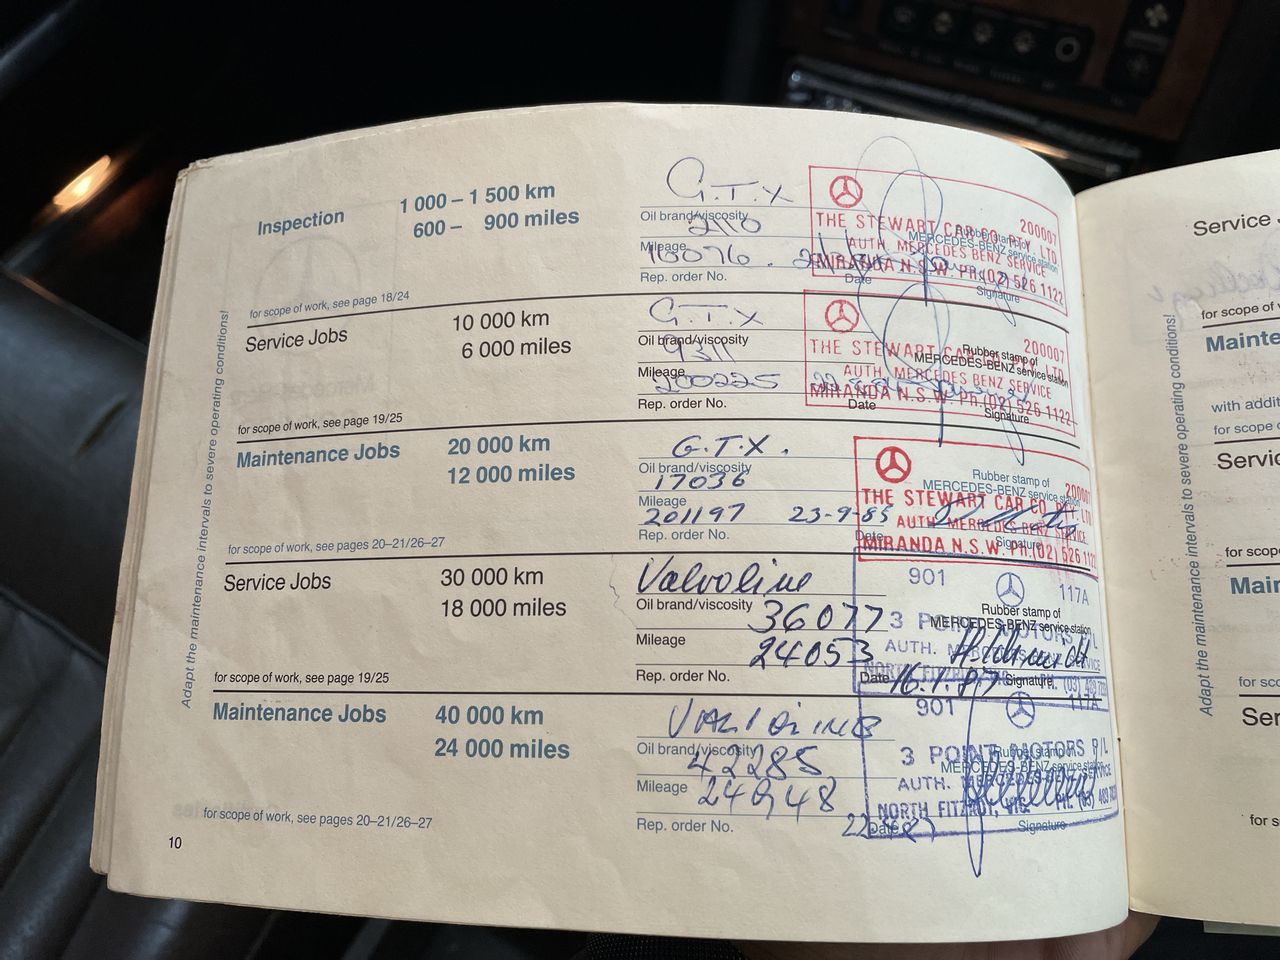 Inspection 1 000 – 1 500 km
600 – 900 miles
G.T.X
Oil brand/viscosity
2110
Mileage
Rep. order No.
Date
Signature
THE STEWART CAR CO. PTY. LTD
200007
AUTH. MERCEDES BENZ SERVICE
MIRANDA N.S.W. PH.(02) 526 1122
for scope of work, see page 18/24
Service Jobs 10 000 km
6 000 miles
G.T.X
Oil brand/viscosity
9311
Mileage
200225
Rep. order No.
Date
Signature
Rubber stamp of
MERCEDES-BENZ service station
THE STEWART CAR CO. PTY. LTD
200007
AUTH. MERCEDES BENZ SERVICE
MIRANDA N.S.W. PH.(02) 526 1122
for scope of work, see page 19/25
Maintenance Jobs 20 000 km
12 000 miles
G.T.X.
Oil brand/viscosity
17036
Mileage
201197 23-9-85
Rep. order No.
Date
Signature
Rubber stamp of
MERCEDES-BENZ service station
THE STEWART CAR CO. PTY. LTD
200007
AUTH. MERCEDES-BENZ SERVICE
MIRANDA N.S.W. PH.(02) 526 1122
for scope of work, see pages 20–21/26–27
Service Jobs 30 000 km
18 000 miles
Valvoline
Oil brand/viscosity
36077
Mileage
24053
Rep. order No.
Date 16.1.87 Signature
901 117A
Rubber stamp of
MERCEDES-BENZ service station
3 POINT MOTORS P/L
AUTH. MERCEDES-BENZ SERVICE
NORTH FITZROY
for scope of work, see page 19/25
Maintenance Jobs 40 000 km
24 000 miles
Oil brand/viscosity
42285
Mileage
Rep. order No.
Date
Signature
901 117A
Rubber stamp of
MERCEDES-BENZ service station
3 POINT MOTORS P/L
AUTH. MERCEDES-BENZ SERVICE
NORTH FITZROY, VIC.
for scope of work, see pages 20–21/26–27
10
Adapt the maintenance intervals to severe operating conditions!
Service
for scope of
Mainte
with addit
for scope
Servic
for scop
Main
for sc
Ser
for s
Adapt the maintenance intervals to severe operating conditions!